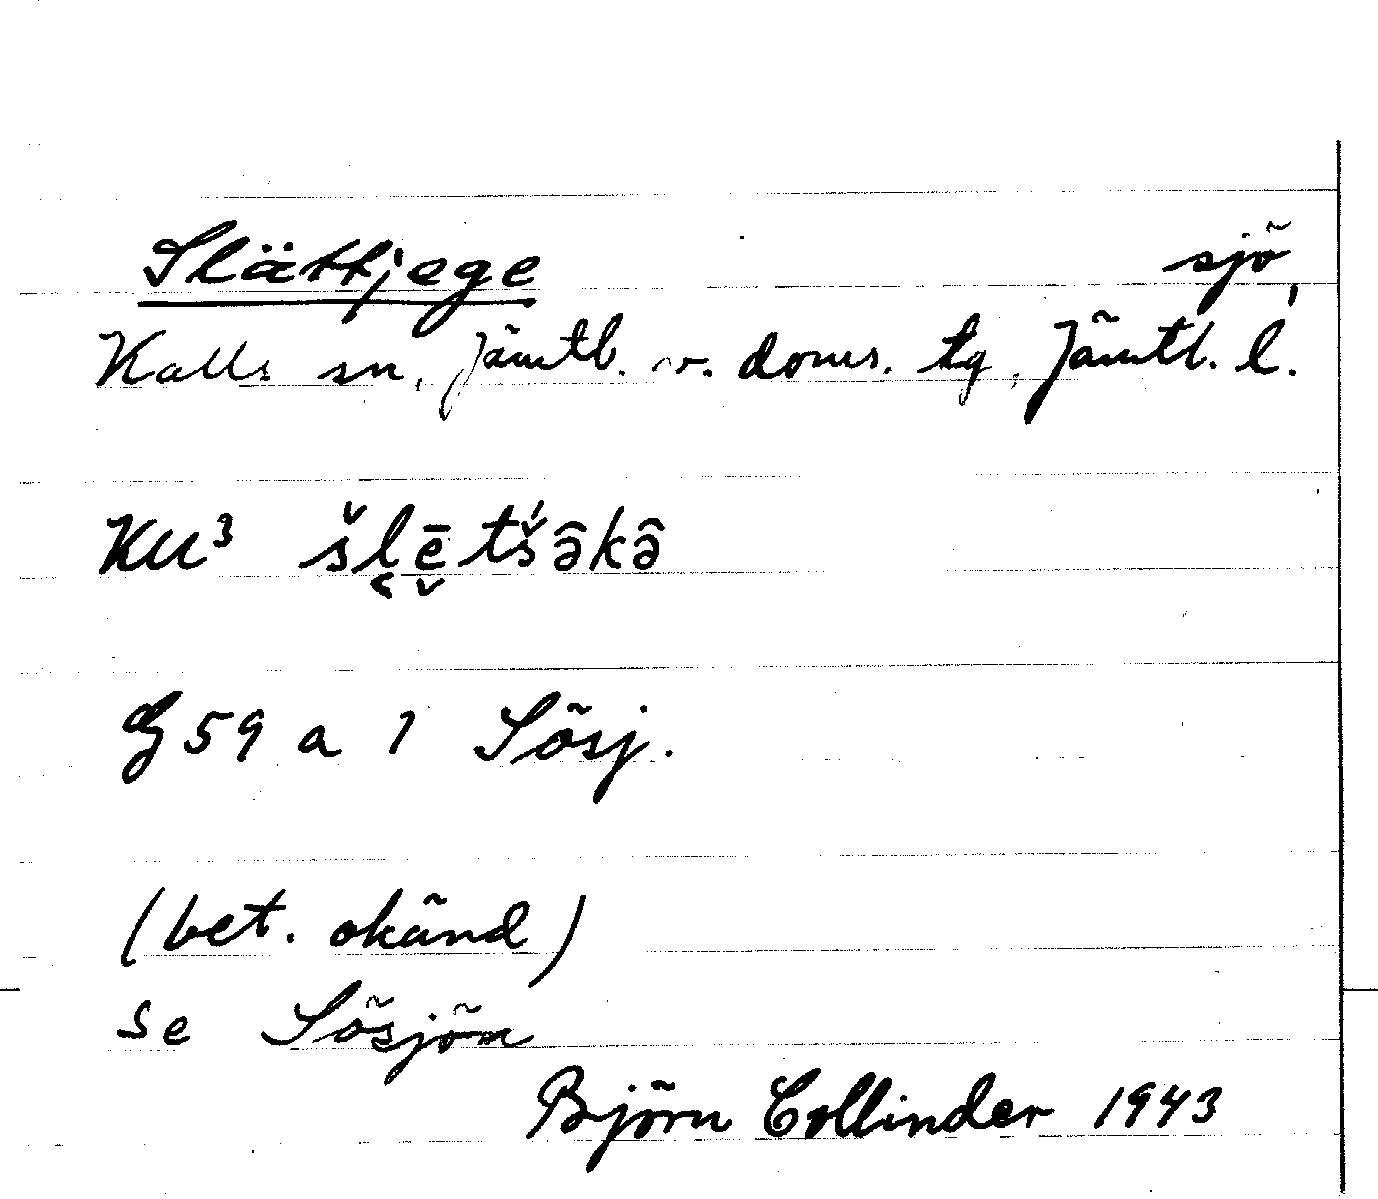 Slättjege sjö,
Kalls sn, Jämtl. v. doms. tg, Jämtl. l.
KU³ šl̨ē̬tš́ə̂kə̂
G 59 a 1 Sösj.
(bet. okänd)
se Sösjön
Björn Collinder 1943